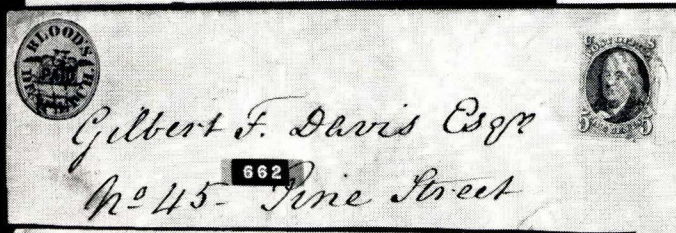 BLOOD'S
PAID
DESPATCH.
POST OFFICE
5 5
Gilbert F. Davis Esqr
662
No 45- Pine Street